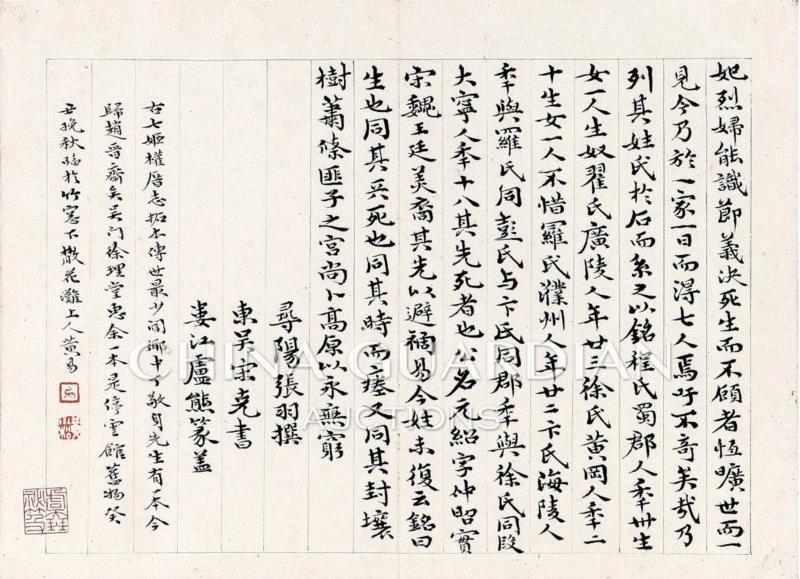 妃烈婦能識節義决死生而不顧者恆曠世而一
見今乃於一家一日而得七人焉吁不奇矣哉乃
列其姓氏於后而系之以銘程氏蜀郡人秊卅生
女一人生奴翟氏廣陵人年廿三徐氏黄岡人秊二
十生女一人不惜羅氏濮州人年廿二卞氏海陵人
秊與羅氏同彭氏与卞氏同郡秊與徐氏同段
大寧人秊十八其先死者也公名元紹字仲昭實
宋魏王廷美裔其先以避禍易今姓未復云銘曰
生也同其死也同其時而瘞又同其封壤
樹蕭條匪子之宫尚卜高原以永無窮
尋陽張羽撰
東吴宋克書
婁江盧熊篆盖
古七姬權厝志拓本傳世最少聞丁敬身先生有一本今
歸趙晋齋矣吴门徐理堂惠余本是停雲館舊物癸
丑晚秋臨於竹窓下散花灘上人黄易
CHINA GUARDIAN
AUCTIONS